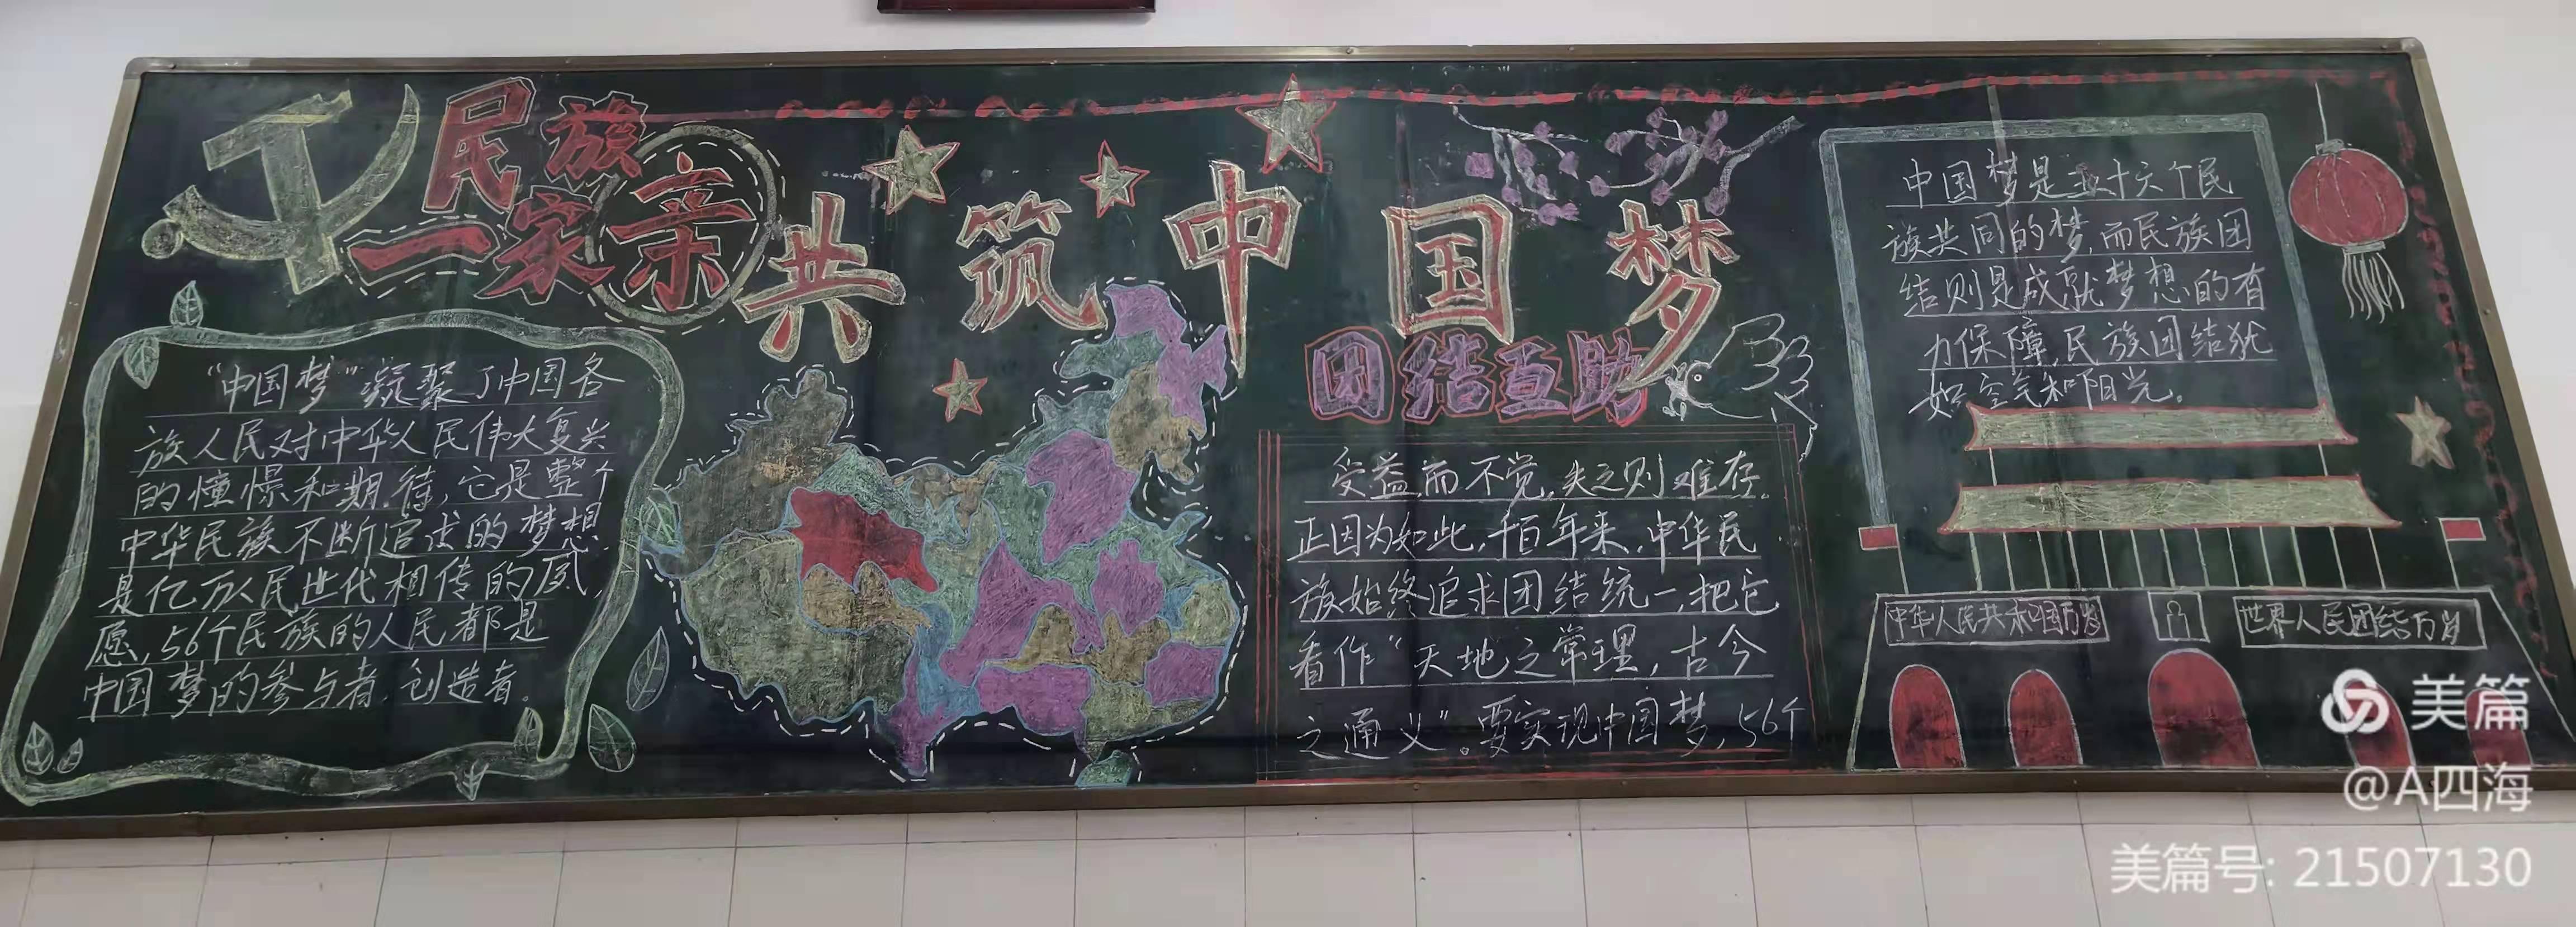 民族
一家亲
共筑中国梦
“中国梦”凝聚了中国各
族人民对中华人民伟大复兴
的憧憬和期待,它是整个
中华民族不断追求的梦想
是亿万人民世代相传的夙
愿,56个民族的人民都是
中国梦的参与者,创造者。
团结互助
受益而不觉,失之则难存。
正因为如此,千百年来,中华民
族始终追求团结统一,把它
看作“天地之常理,古今
之通义”。要实现中国梦,56个
中国梦是五十六个民
族共同的梦,而民族团
结则是成就梦想的有
力保障,民族团结犹
如空气和阳光。
中华人民共和国万岁
世界人民团结万岁
美篇
@A四海
美篇号: 21507130